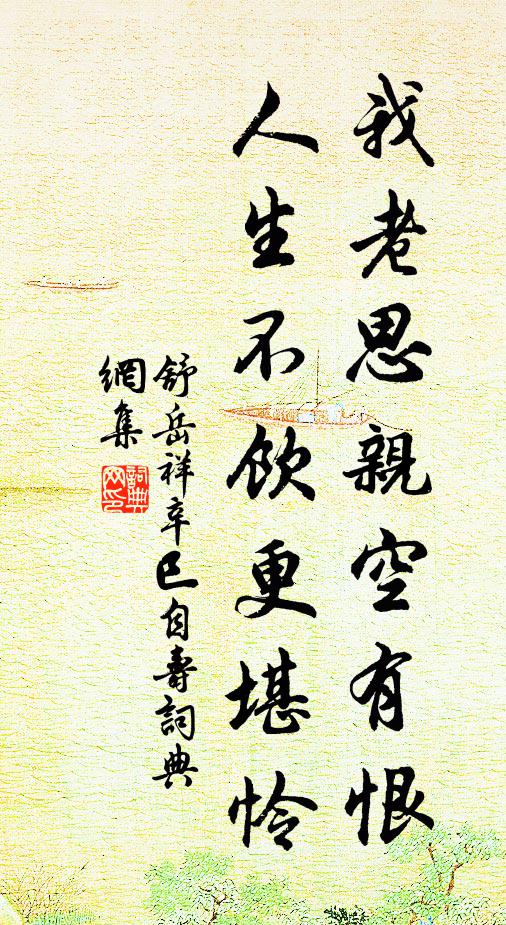 我老思親空有恨
人生不飲更堪怜
舒岳祥辛巳自壽詞典
網集
詞典
网印